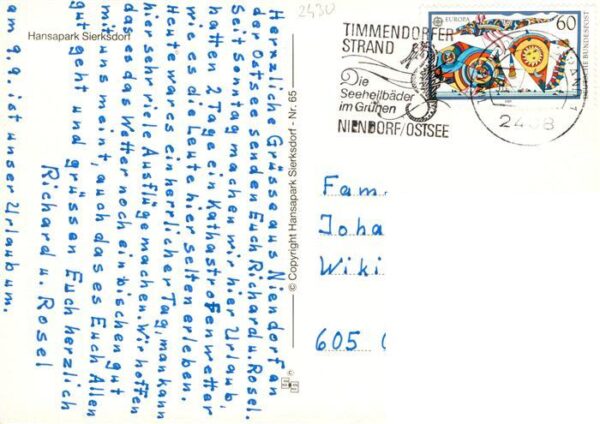 Hansapark Sierksdorf
2430
Herzliche Grüsse aus Niendorf an
der Ostsee senden Euch Richard u. Rosel.
Seit Sonntag machen wir hier Urlaub,
hatten 2 Tage ein Kathastrofenwetter
wie es die Leute hier selten erleben.
Heute war es ein herrlicher Tag, man kann
hier sehr viele Ausflüge machen. Wir hoffen
das es das Wetter noch ein bischen gut
mit uns meint, auch das es Euch Allen
gut geht und grüssen Euch herzlich
Richard u. Rosel
am 9.9. ist unser Urlaub um.
© Copyright Hansapark Sierksdorf - Nr. 65
TIMMENDORFER
STRAND
Die
Seeheilbäder
im Grünen
NIENDORF/OSTSEE
EUROPA
60
DEUTSCHE BUNDESPOST
2408
Fam.
Joha
Wiki
605